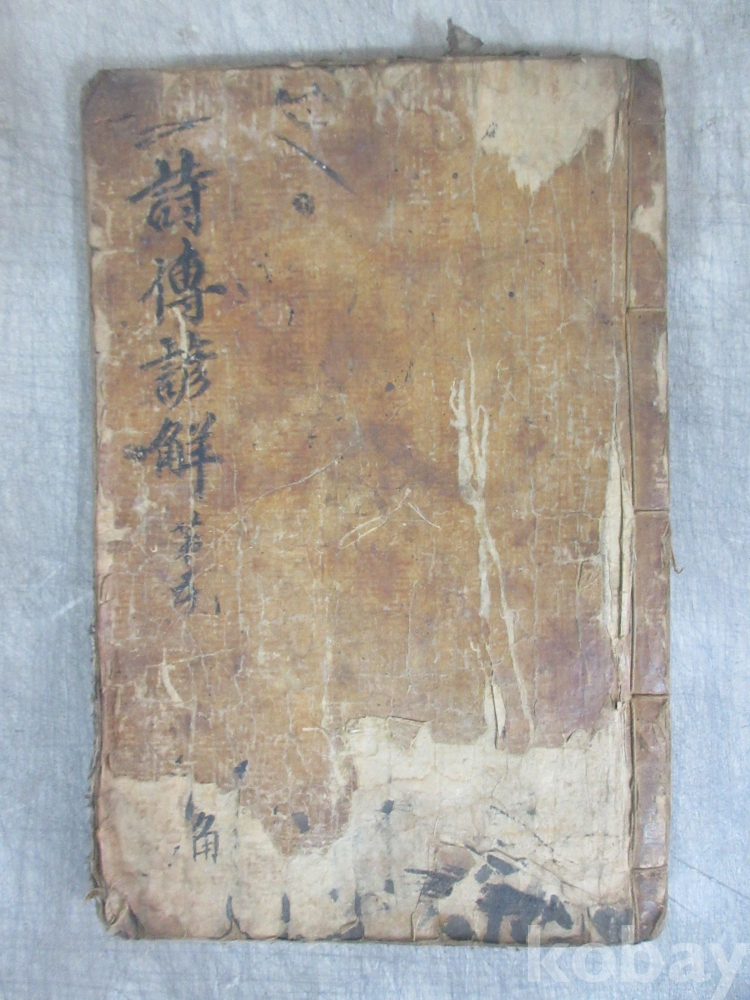 詩傳諺解
角
kobay